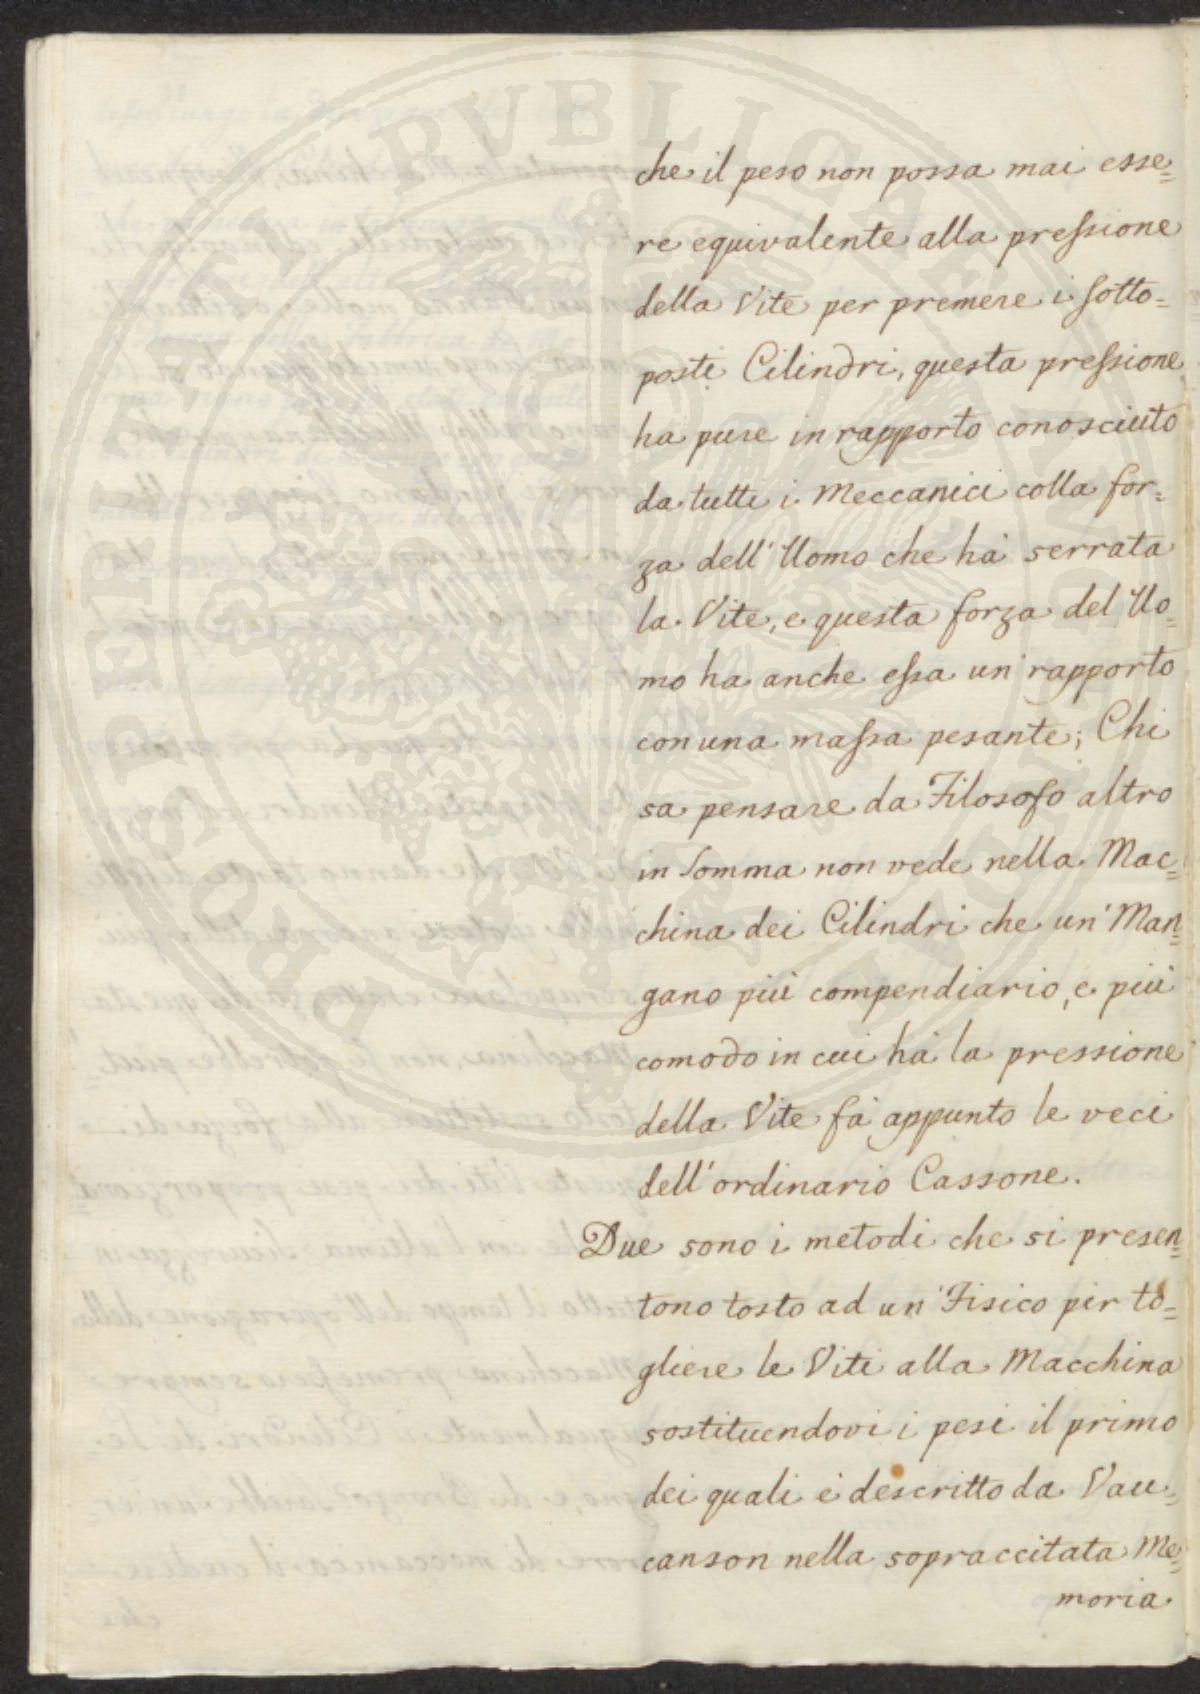 che il peso non possa mai esse=
re equivalente alla pressione
della Vite per premere i sotto=
posti Cilindri, questa pressione
ha pure in rapporto conosciuto
da tutti i Meccanici colla for=
za dell'Uomo che hà serrata
la Vite, e questa forza del Uo=
mo ha anche essa un'rapporto
con una massa pesante; Chi
sa pensare da Filosofo altro
in somma non vede nella Mac=
china dei Cilindri che un'Man=
gano più compendiario, e più
comodo in cui hà la pressione
della Vite fà appunto le veci
dell'ordinario Cassone.
Due sono i metodi che si presen=
tono tosto ad un'Fisico per to=
gliere le Viti alla Macchina
sostituendovi i pesi il primo
dei quali è descritto da Vau=
canson nella sopraccitata Me=
moria
PROSPERITATI PVBLICAE AVGENDAE